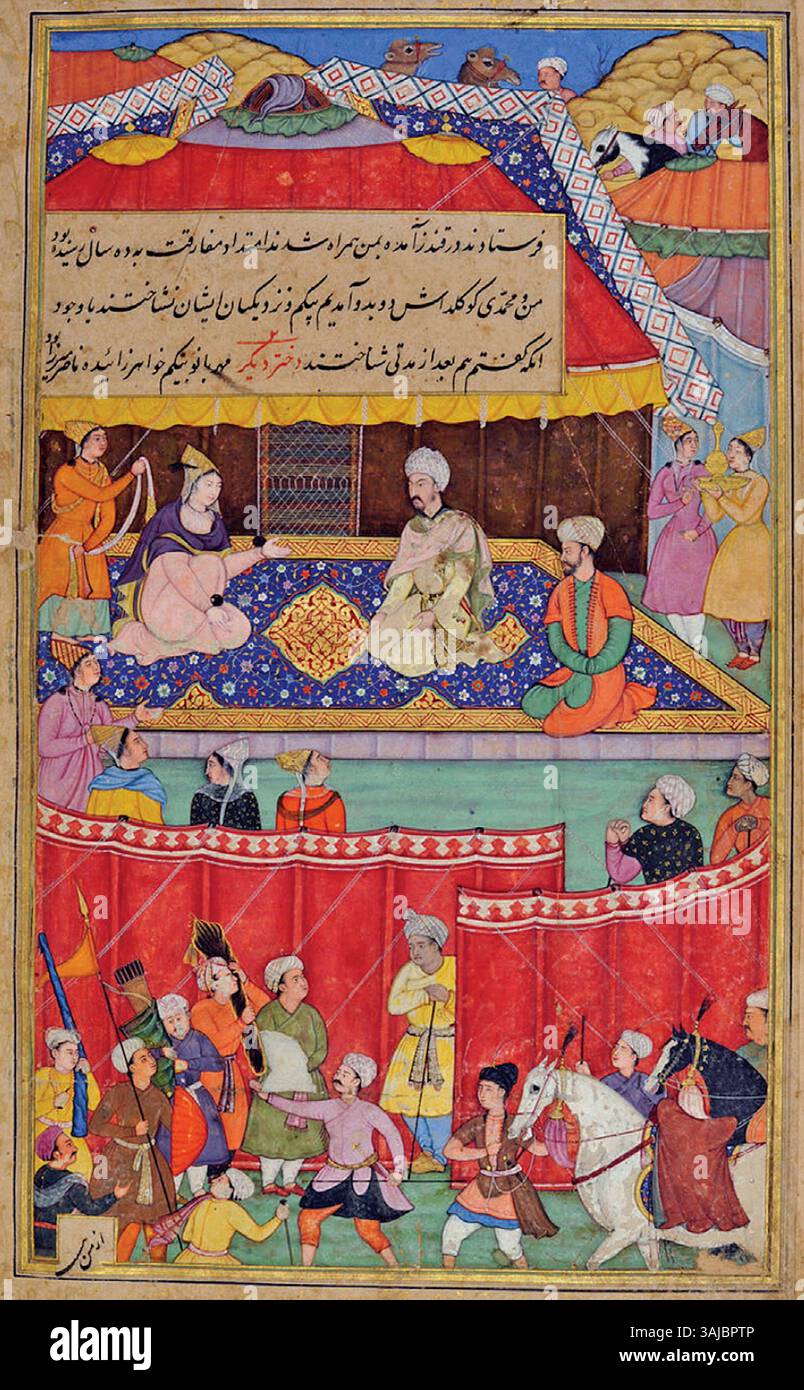 فرستادند در قندز آمده بمن همراه شدند امتداد مفارقت به ده سال رسیده بود
من و محمدی کوکلداش دو بدو آمدیم بیکم و نزدیکیان ایشان نشناختند با وجود
انکه گفتم هم بعد از مدتی شناختند دختر دیگر مهربانو بیکم خواهر زائیده ناصر میرزا بود
alamy
Image ID: 3AJBPTP
www.alamy.com